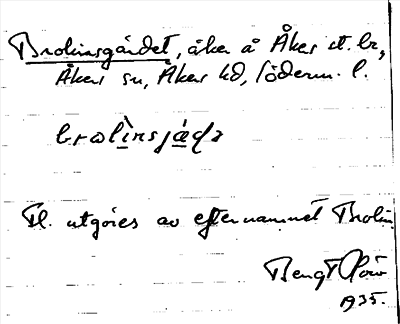 Brolinsgärdet, åker å Åker st. br,
Åkers sn, Åkers hd, Söderm. l.
brolinsjäḍə
Fl. utgöres av efternamnet Brolin
Bengt
1935.